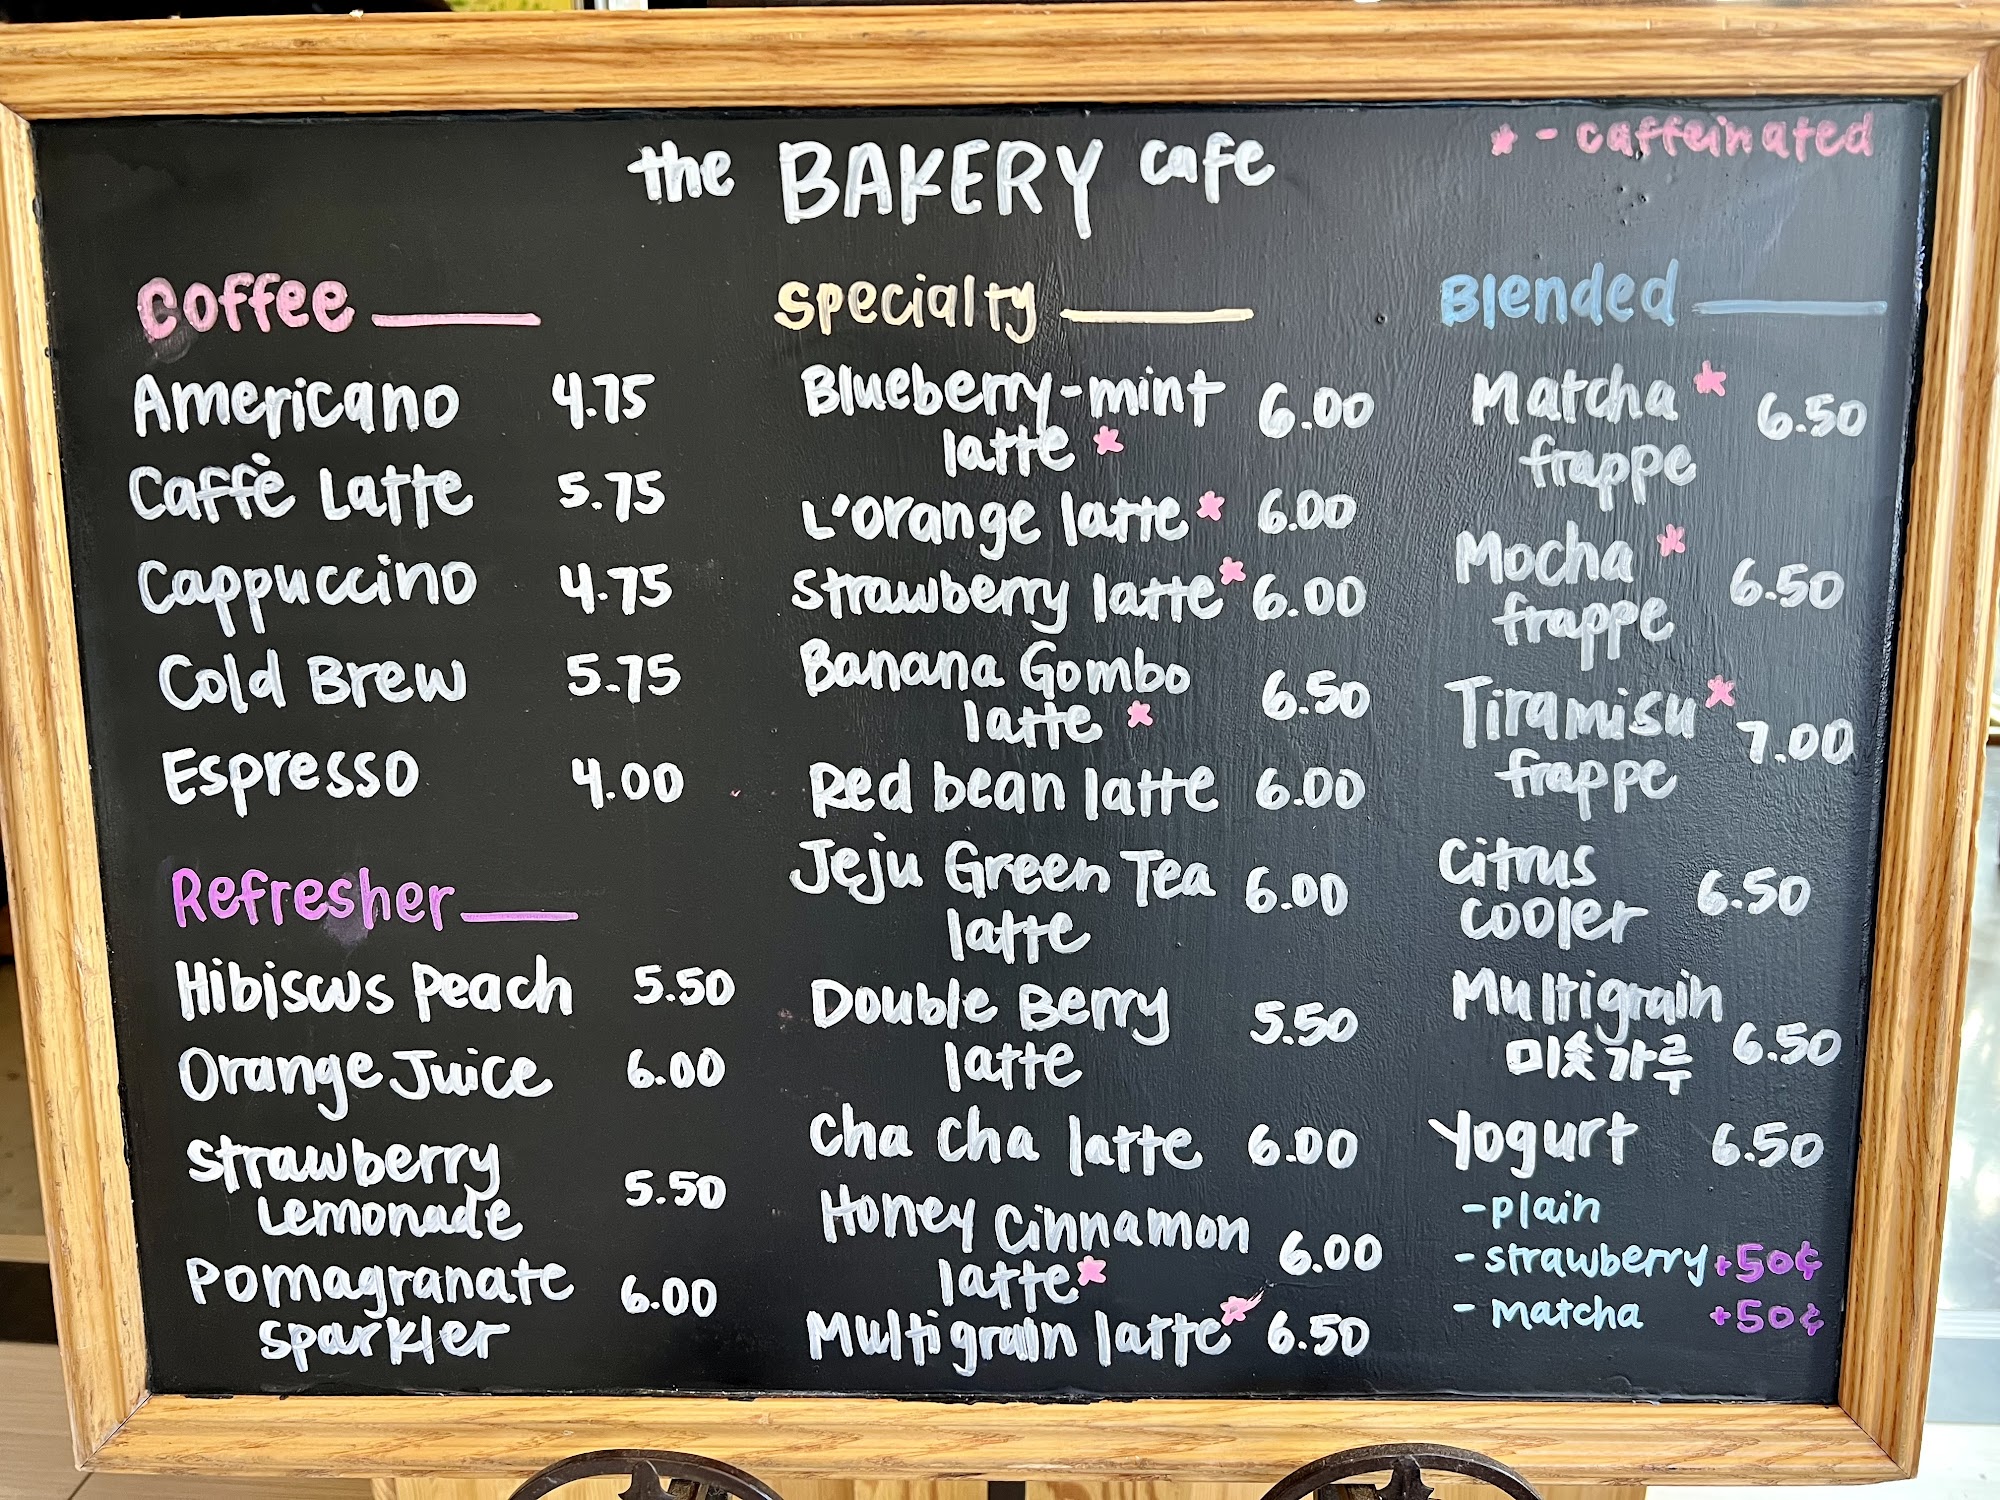 the BAKERY cafe
* - caffeinated
Coffee
Americano 4.75
Caffè Latte 5.75
Cappuccino 4.75
Cold Brew 5.75
Espresso 4.00
Refresher
Hibiscus Peach 5.50
Orange Juice 6.00
Strawberry
Lemonade 5.50
Pomagranate
Sparkler 6.00
Specialty
Blueberry-mint 6.00
latte *
L'orange latte * 6.00
Strawberry latte * 6.00
Banana Gombo 6.50
latte *
Red bean latte 6.00
Jeju Green Tea 6.00
latte
Double Berry 5.50
latte
Cha Cha latte 6.00
Honey Cinnamon 6.00
latte *
Multigrain latte * 6.50
Blended
Matcha * 6.50
frappe
Mocha * 6.50
frappe
Tiramisu * 7.00
frappe
Citrus 6.50
cooler
Multigrain
미숫가루 6.50
Yogurt 6.50
- plain
- strawberry +50¢
- matcha +50¢